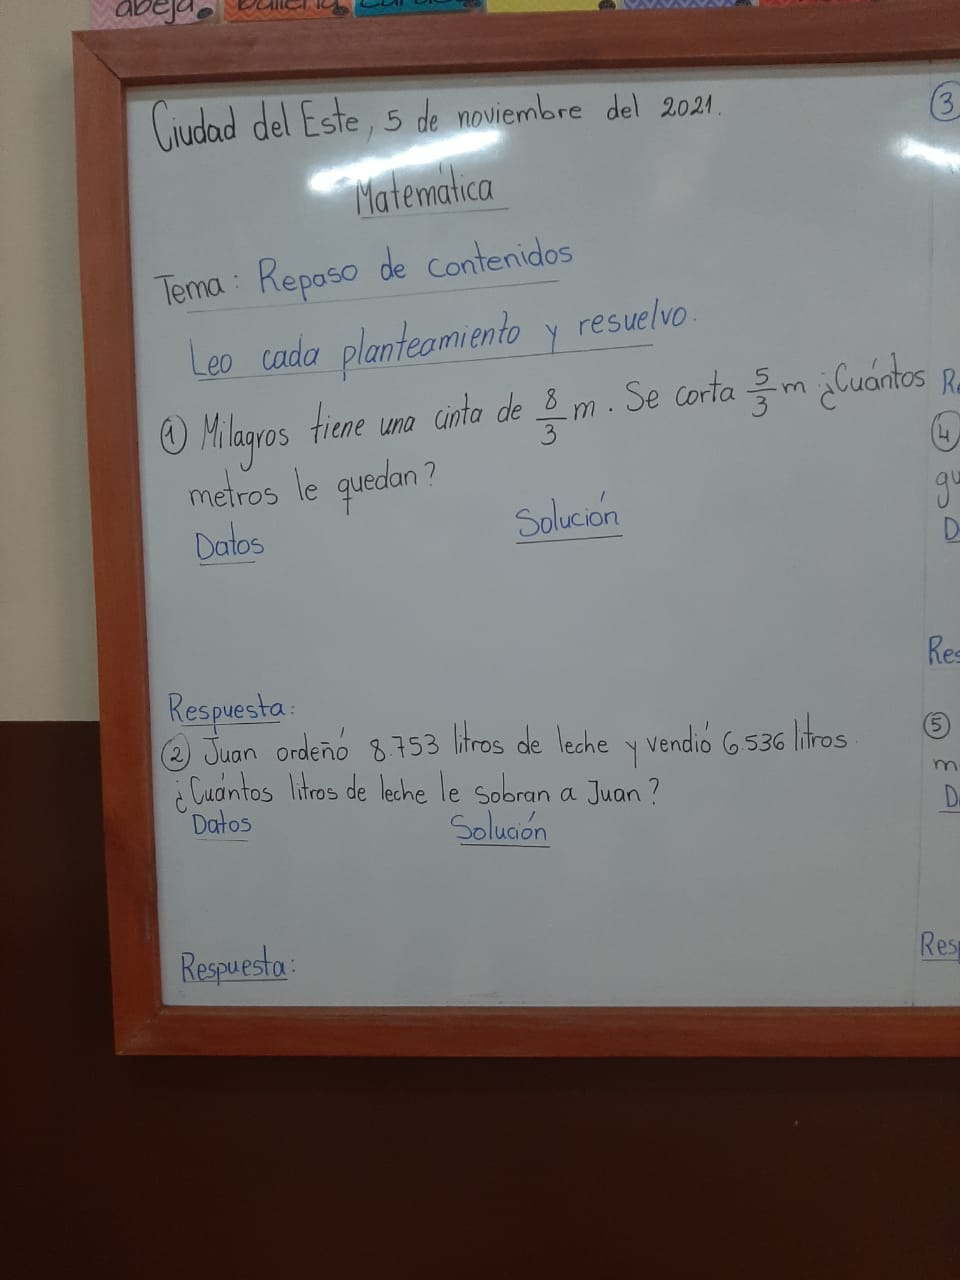 abeja
ballena
Ciudad del Este, 5 de noviembre del 2021.
Matemática
Tema: Repaso de contenidos
Leo cada planteamiento y resuelvo.
① Milagros tiene una cinta de 8/3 m. Se corta 5/3 m ¿Cuántos
metros le quedan?
Datos Solución
Respuesta:
② Juan ordeñó 8.753 litros de leche y vendió 6.536 litros
¿Cuántos litros de leche le sobran a Juan?
Datos Solución
Respuesta:
③
④
gu
D
Res
⑤
m
D
Resp